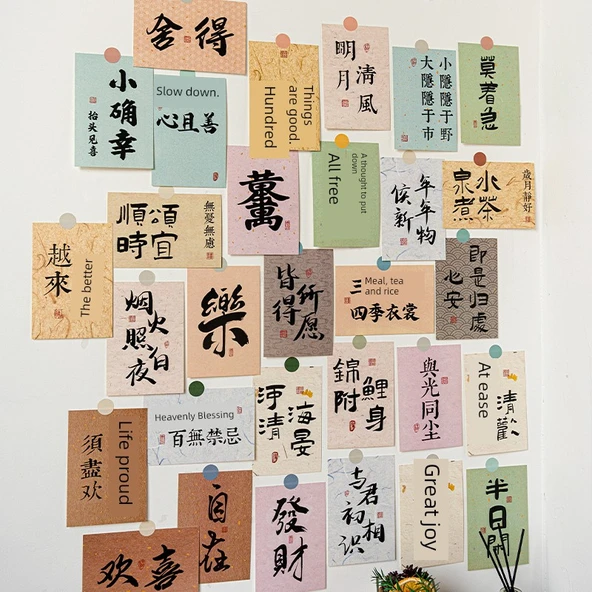 舍得
小确幸
抬头见喜
Slow down.
心且善
Things
are good.
Hundred
明月
清風
小隱隱于野
大隱隱于市
莫着急
All free
A thought to put
down
年年物
候新
歲月靜好
小茶
泉煮
無憂無慮
頌宜
順時
越來
The better
烟火
照夜白
樂
所愿
皆得
Meal, tea
and rice
三
四季衣裳
即是归處
心安
Heavenly Blessing
百無禁忌
海晏
河清
鯉身
錦附
與光同尘
At ease
清歡
Life proud
須盡欢
自在
發財
与君相
初识
Great joy
半日閑
欢喜